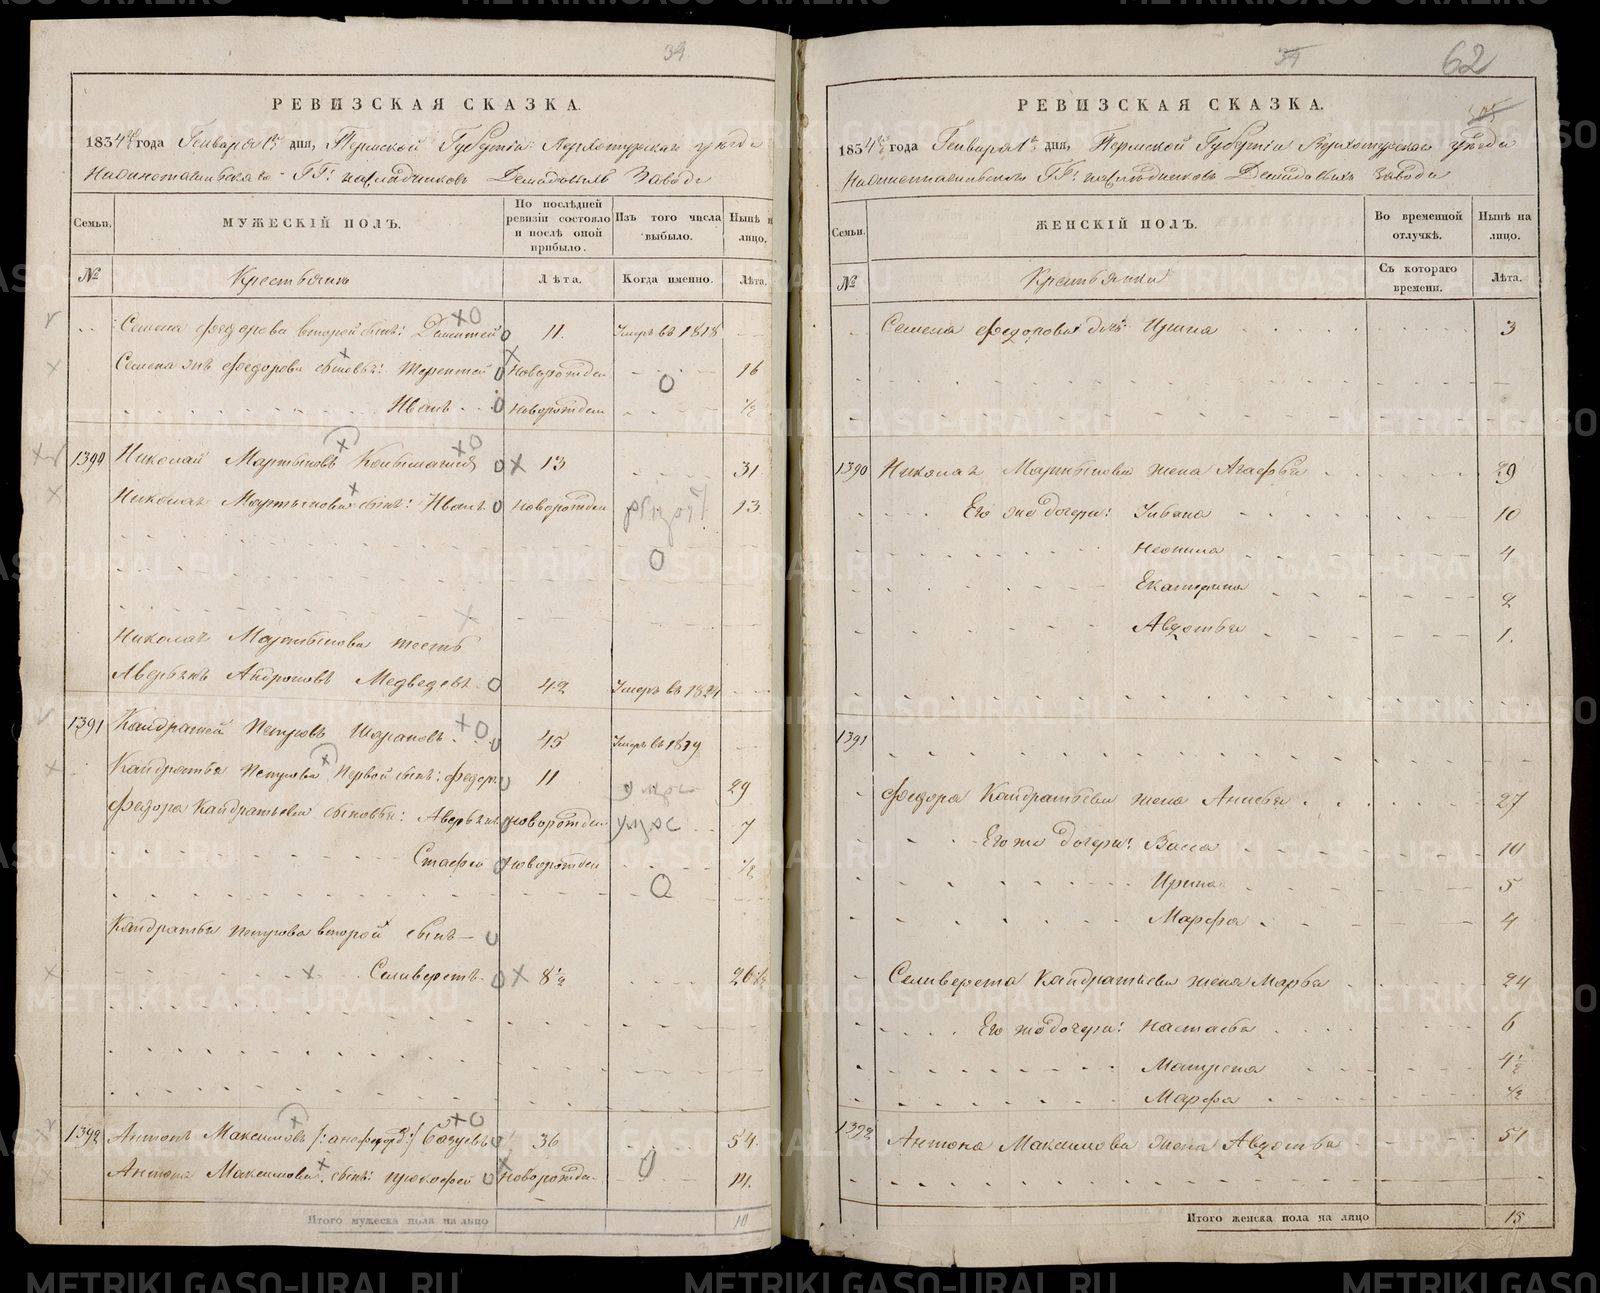 39
РЕВИЗСКАЯ СКАЗКА.
1834 года Генваря 1 дня, Пермской Губерніи Верхотурскаго уезда
ГГ: наследниковъ Демидовыхъ Заводе
Семьи.
МУЖЕСКІЙ ПОЛЪ.
По последней ревизіи состояло и после оной прибыло.
Изъ того числа выбыло.
Ныне на лицо.
№
Крестьяне
Лета.
Когда именно.
Лета.
Семена Федорова второй сынъ: Дементей 11. Умеръ въ 1818
Семена жъ Федорова сыновья: Терентей новорожден 16
Иванъ новорожден ½
1390 Николай Мартыновъ 13 31
Николая Мартынова сынъ: Иванъ новорожден 13
Николая Мартынова тесть
Аверьянъ Андроновъ Медведевъ 42 Умеръ въ 1824
1391 Кандратей Петровъ Шараповъ 45 Умеръ въ 1819
Кандратья Петрова Первой сынъ: Федоръ 11 29
Федора Кандратьева сыновья: Аверьянъ новорожден 7
новорожден ½
Кандратья Петрова второй сынъ
Селиверстъ 8½ 26½
1392 Антонъ Максимовъ 36 54
Антона Максимова сынъ: Прокофей новорожден 14.
Итого мужеска пола на лицо 10
39
62
РЕВИЗСКАЯ СКАЗКА.
1834 года Генваря 1 дня, Пермской Губерніи Верхотурскаго уезда
ГГ: наследниковъ Демидовыхъ Заводе
Семьи.
ЖЕНСКІЙ ПОЛЪ.
Во временной отлучке.
Ныне на лицо.
№
Крестьянки
Съ котораго времени.
Лета.
Семена Федорова дочь Ирина 3
1390 Николая Мартынова жена Агафья 29
Его же дочери: Ульяна 10
Неонила 4
Екатерина 2
Авдотья 1.
1391
Федора Кандратьева жена Анисья 27
Его же дочери: Васса 10
Ирина 5
Марфа 4
Селиверста Кандратьева жена Марья 24
Его же дочери: Настасья 6
Матрена 4½
Марфа ½
1392 Антона Максимова жена Авдотья 51
Итого женска пола на лицо 15
METRIKI.GASO-URAL.RU